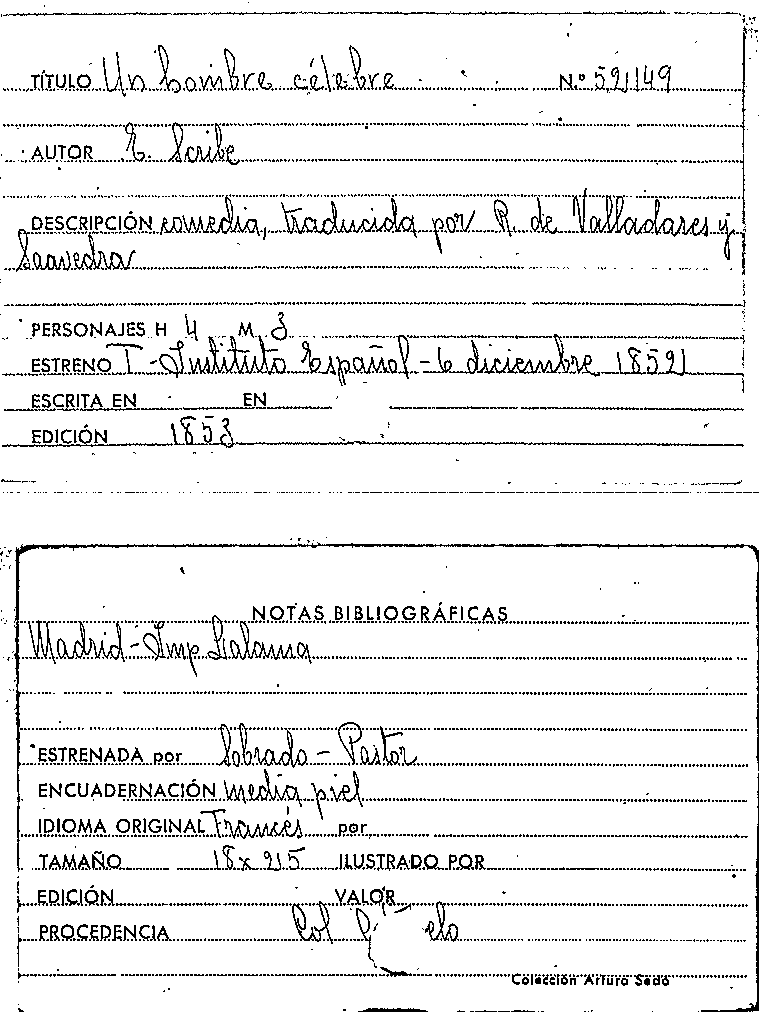 TÍTULO Un hombre célebre N.º 52149
AUTOR E. Scribe
DESCRIPCIÓN comedia, traducida por R. de Valladares y
Saavedra
PERSONAJES H 4 M 3
ESTRENO T - Instituto Español - 6 diciembre 1852
ESCRITA EN EN
EDICIÓN 1853
NOTAS BIBLIOGRÁFICAS
Madrid - Imp
ESTRENADA por Sobrado - Pastor
ENCUADERNACIÓN media piel
IDIOMA ORIGINAL Francés por
TAMAÑO ILUSTRADO POR
EDICIÓN VALOR
PROCEDENCIA Col
Colección Arturo Sedó